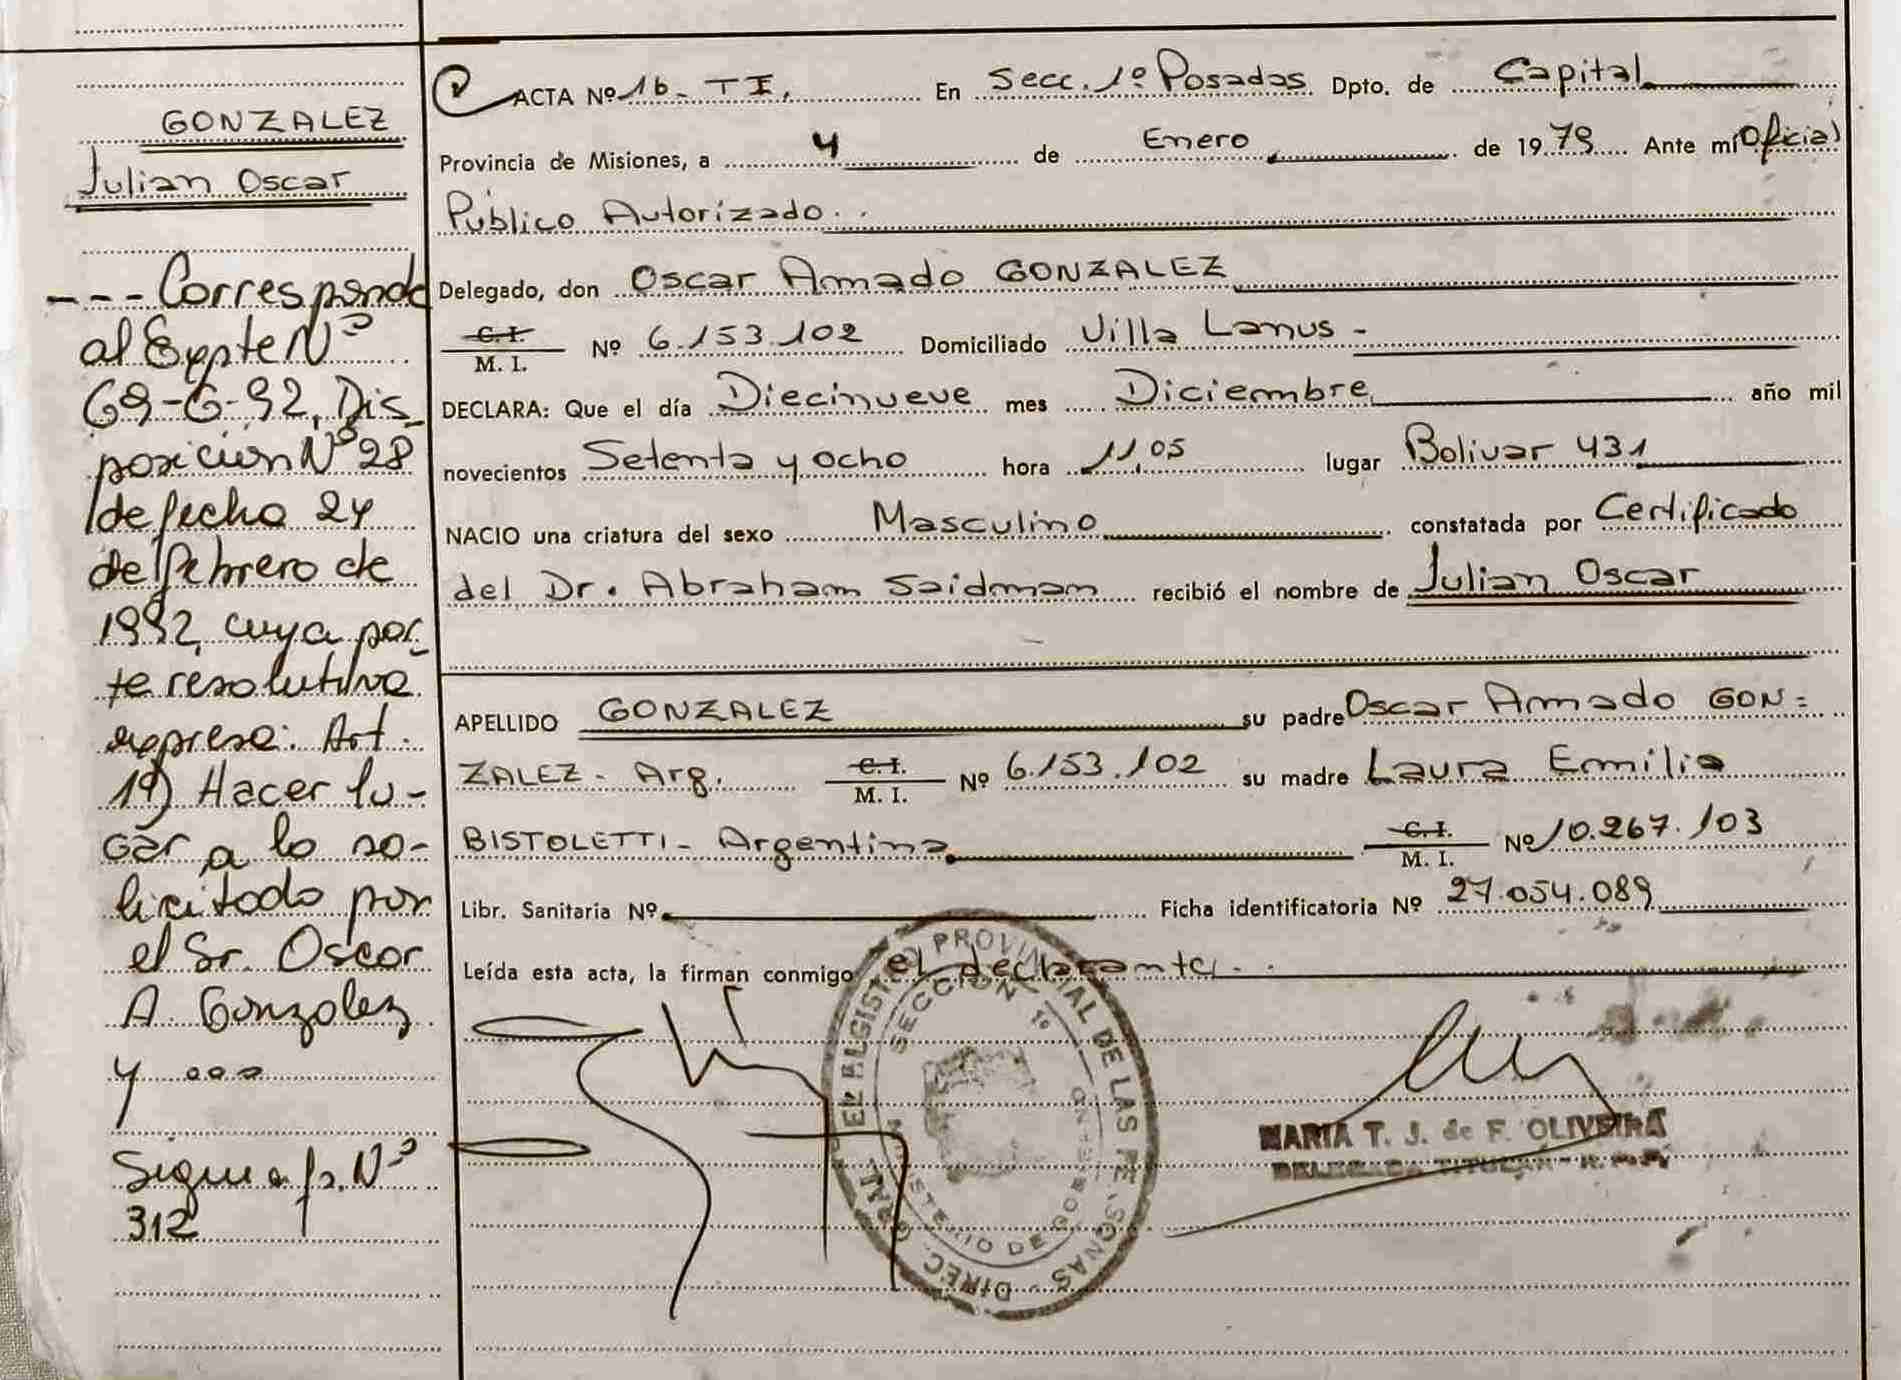 GONZALEZ
Julian Oscar
--- Corresponde
al Expte Nº
69-G-92, Dis-
posición Nº 28
de fecha 24
de febrero de
1992, cuya par-
te resolutiva
expresa: Art.
1º) Hacer lu-
gar a lo so-
licitado por
el Sr. Oscar
A. Gonzalez
y ooo
Sigue a fs. Nº
312
ACTA Nº 16 - TI, En Secc. 1º Posadas Dpto. de Capital
Provincia de Misiones, a 4 de Enero de 1979 Ante mí Oficial
Público Autorizado.
Delegado, don Oscar Amado GONZALEZ
C.I.
M. I. Nº 6.153.102 Domiciliado Villa Lanus -
DECLARA: Que el día Diecinueve mes Diciembre año mil
novecientos Setenta y ocho hora 11,05 lugar Bolivar 431
NACIO una criatura del sexo Masculino constatada por Certificado
del Dr. Abraham Saidman recibió el nombre de Julian Oscar
APELLIDO GONZALEZ su padre Oscar Amado GON=
ZALEZ - Arg. C.I. M. I. Nº 6.153.102 su madre Laura Emilia
BISTOLETTI - Argentina C.I. M. I. Nº 10.267.103
Libr. Sanitaria Nº Ficha identificatoria Nº 27.054.089
Leída esta acta, la firman conmigo el declarante.
DIREC. GRAL. DEL REGISTRO PROVINCIAL DE LAS PERSONAS
SECCION 1º
MINISTERIO DE GOBIERNO
MARIA T. J. de F. OLIVEIRA
DELEGADA TITULAR - R. P. P.